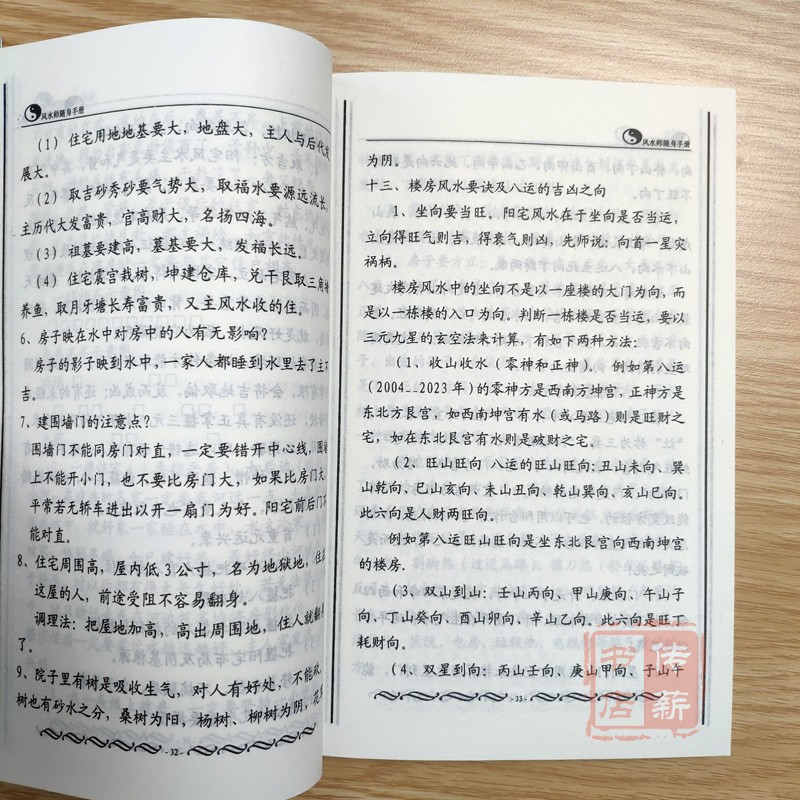 风水师随身手册
(1) 住宅用地地基要大，地盘大，主人与后代发
展大。
(2) 取吉砂秀砂要气势大，取福水要源远流长，
主历代大发富贵，官高财大，名扬四海。
(3) 祖墓要建高，墓基要大，发福长远。
(4) 住宅震宫栽树，坤建仓库，兑干艮取三角塘
养鱼，取月牙塘长寿富贵，又主风水收的住。
6、房子映在水中对房中的人有无影响？
房子的影子映到水中，一家人都睡到水里去了主不
吉。
7、建围墙门的注意点？
围墙门不能同房门对直，一定要错开中心线，围墙
上不能开小门，也不要比房门大，如果比房门大，
平常若无轿车进出以开一扇门为好。阳宅前后门不
能对直。
8、住宅周围高，屋内低 3 公寸，名为地狱地，住在
这屋的人，前途受阻不容易翻身。
调理法：把屋地加高，高出周围地，住人就翻身
了。
9、院子里有树是吸收生气，对人有好处，不能砍，
树也有砂水之分，桑树为阳，杨树、柳树为阴，花
- 32 -
风水师随身手册
为阴。
十三、楼房风水要诀及八运的吉凶之向
1、坐向要当旺。阳宅风水在于坐向是否当运，
立向得旺气则吉，得衰气则凶，先师说：向首一星灾
祸柄。
楼房风水中的坐向不是以一座楼的大门为向，而
是以一栋楼的入口为向。判断一栋楼是否当运，要以
三元九星的玄空法来计算，有如下两种方法：
(1、收山收水（零神和正神）。例如第八运
(2004--2023 年)的零神方是西南方坤宫，正神方是
东北方艮宫，如西南坤宫有水（或马路）则是旺财之
宅，如在东北艮宫有水则是破财之宅。
(2、旺山旺向 八运的旺山旺向：丑山未向、巽
山乾向、巳山亥向、未山丑向、乾山巽向、亥山巳向。
此六向是人财两旺向。
例如第八运旺山旺向是坐东北艮宫向西南坤宫
的楼房.
(3、双山到山：壬山丙向、甲山庚向、午山子
向、丁山癸向、酉山卯向、辛山乙向。此六向是旺丁
耗财向。
(4、双星到向：丙山壬向、庚山甲向、子山午
- 33 -
传薪
书店